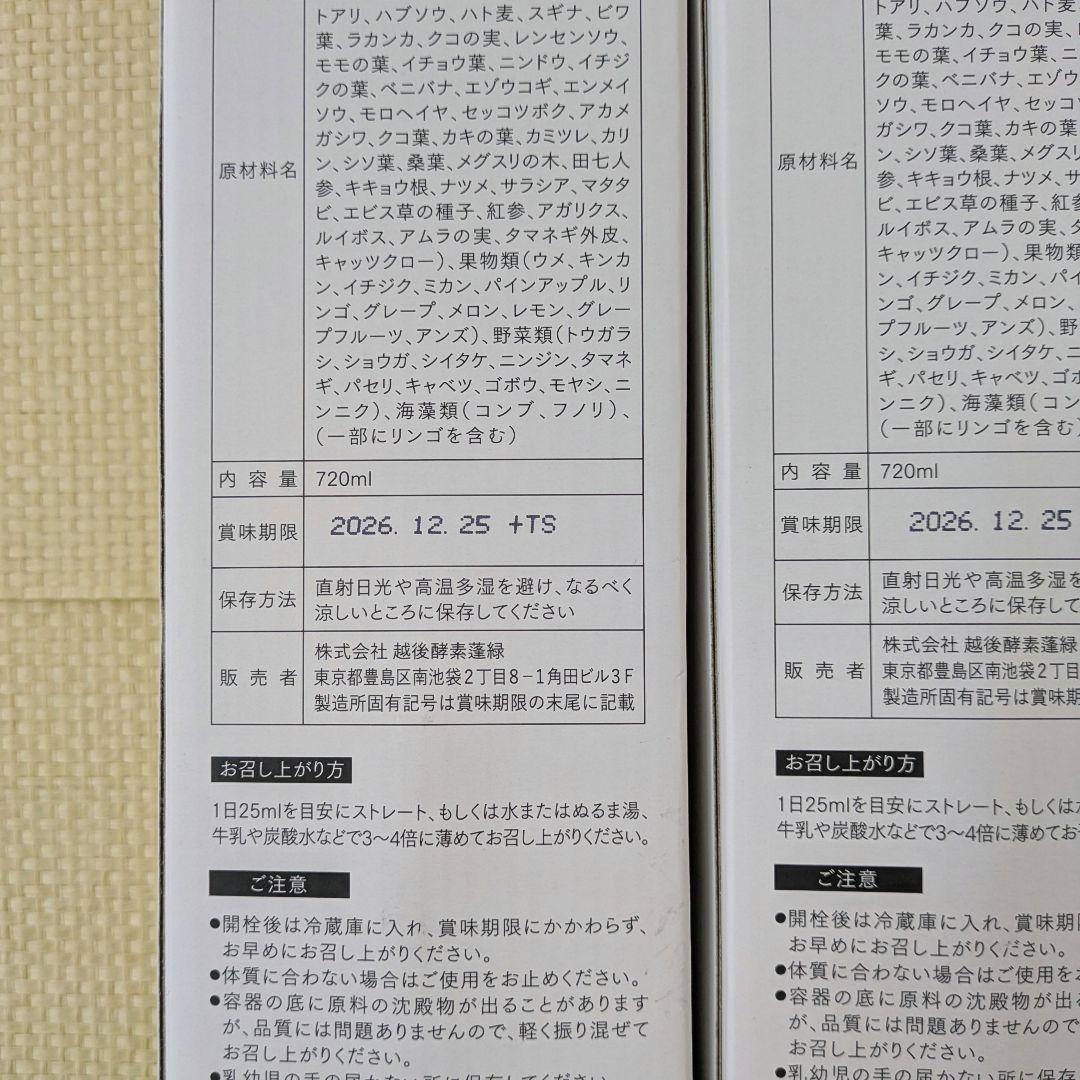 トアリ、ハブソウ、ハト麦、スギナ、ビワ
葉、ラカンカ、クコの実、レンセンソウ、
モモの葉、イチョウ葉、ニンドウ、イチジ
クの葉、ベニバナ、エゾウコギ、エンメイ
ソウ、モロヘイヤ、セッコツボク、アカメ
ガシワ、クコ葉、カキの葉、カミツレ、カリ
ン、シソ葉、桑葉、メグスリの木、田七人
参、キキョウ根、ナツメ、サラシア、マタタ
ビ、エビス草の種子、紅参、アガリクス、
ルイボス、アムラの実、タマネギ外皮、
キャッツクロー)、果物類(ウメ、キンカ
ン、イチジク、ミカン、パインアップル、リ
ンゴ、グレープ、メロン、レモン、グレー
プフルーツ、アンズ)、野菜類(トウガラ
シ、ショウガ、シイタケ、ニンジン、タマネ
ギ、パセリ、キャベツ、ゴボウ、モヤシ、ニ
ンニク)、海藻類(コンブ、フノリ)、
(一部にリンゴを含む)
原材料名
内容量 720ml
賞味期限 2026. 12. 25 +TS
保存方法 直射日光や高温多湿を避け、なるべく
涼しいところに保存してください
販売者 株式会社 越後酵素蓬緑
東京都豊島区南池袋2丁目8-1角田ビル3F
製造所固有記号は賞味期限の末尾に記載
お召し上がり方
1日25mlを目安にストレート、もしくは水またはぬるま湯、
牛乳や炭酸水などで3〜4倍に薄めてお召し上がりください。
ご注意
●開栓後は冷蔵庫に入れ、賞味期限にかかわらず、
お早めにお召し上がりください。
●体質に合わない場合はご使用をお止めください。
●容器の底に原料の沈殿物が出ることがあります
が、品質には問題ありませんので、軽く振り混ぜて
お召し上がりください。
●乳幼児の手の届かない所に保存してください。
トアリ、ハブソウ、ハト麦
葉、ラカンカ、クコの実、
モモの葉、イチョウ葉、ニ
クの葉、ベニバナ、エゾウ
ソウ、モロヘイヤ、セッコ
ガシワ、クコ葉、カキの葉
ン、シソ葉、桑葉、メグスリ
参、キキョウ根、ナツメ、サ
ビ、エビス草の種子、紅参
ルイボス、アムラの実、タ
キャッツクロー)、果物類
ン、イチジク、ミカン、パイ
ンゴ、グレープ、メロン、
プフルーツ、アンズ)、野
シ、ショウガ、シイタケ、ニ
ギ、パセリ、キャベツ、ゴボ
ンニク)、海藻類(コン
(一部にリンゴを含む)
原材料名
内容量 720ml
賞味期限 2026. 12. 25
保存方法 直射日光や高温多湿を
涼しいところに保存して
販売者 株式会社 越後酵素蓬緑
東京都豊島区南池袋2丁目
製造所固有記号は賞味期
お召し上がり方
1日25mlを目安にストレート、もしくは
牛乳や炭酸水などで3〜4倍に薄めてお
ご注意
●開栓後は冷蔵庫に入れ、賞味期
お早めにお召し上がりください。
●体質に合わない場合はご使用を
●容器の底に原料の沈殿物が出
が、品質には問題ありませんので
お召し上がりください。
●乳幼児の手の届かない所に保存